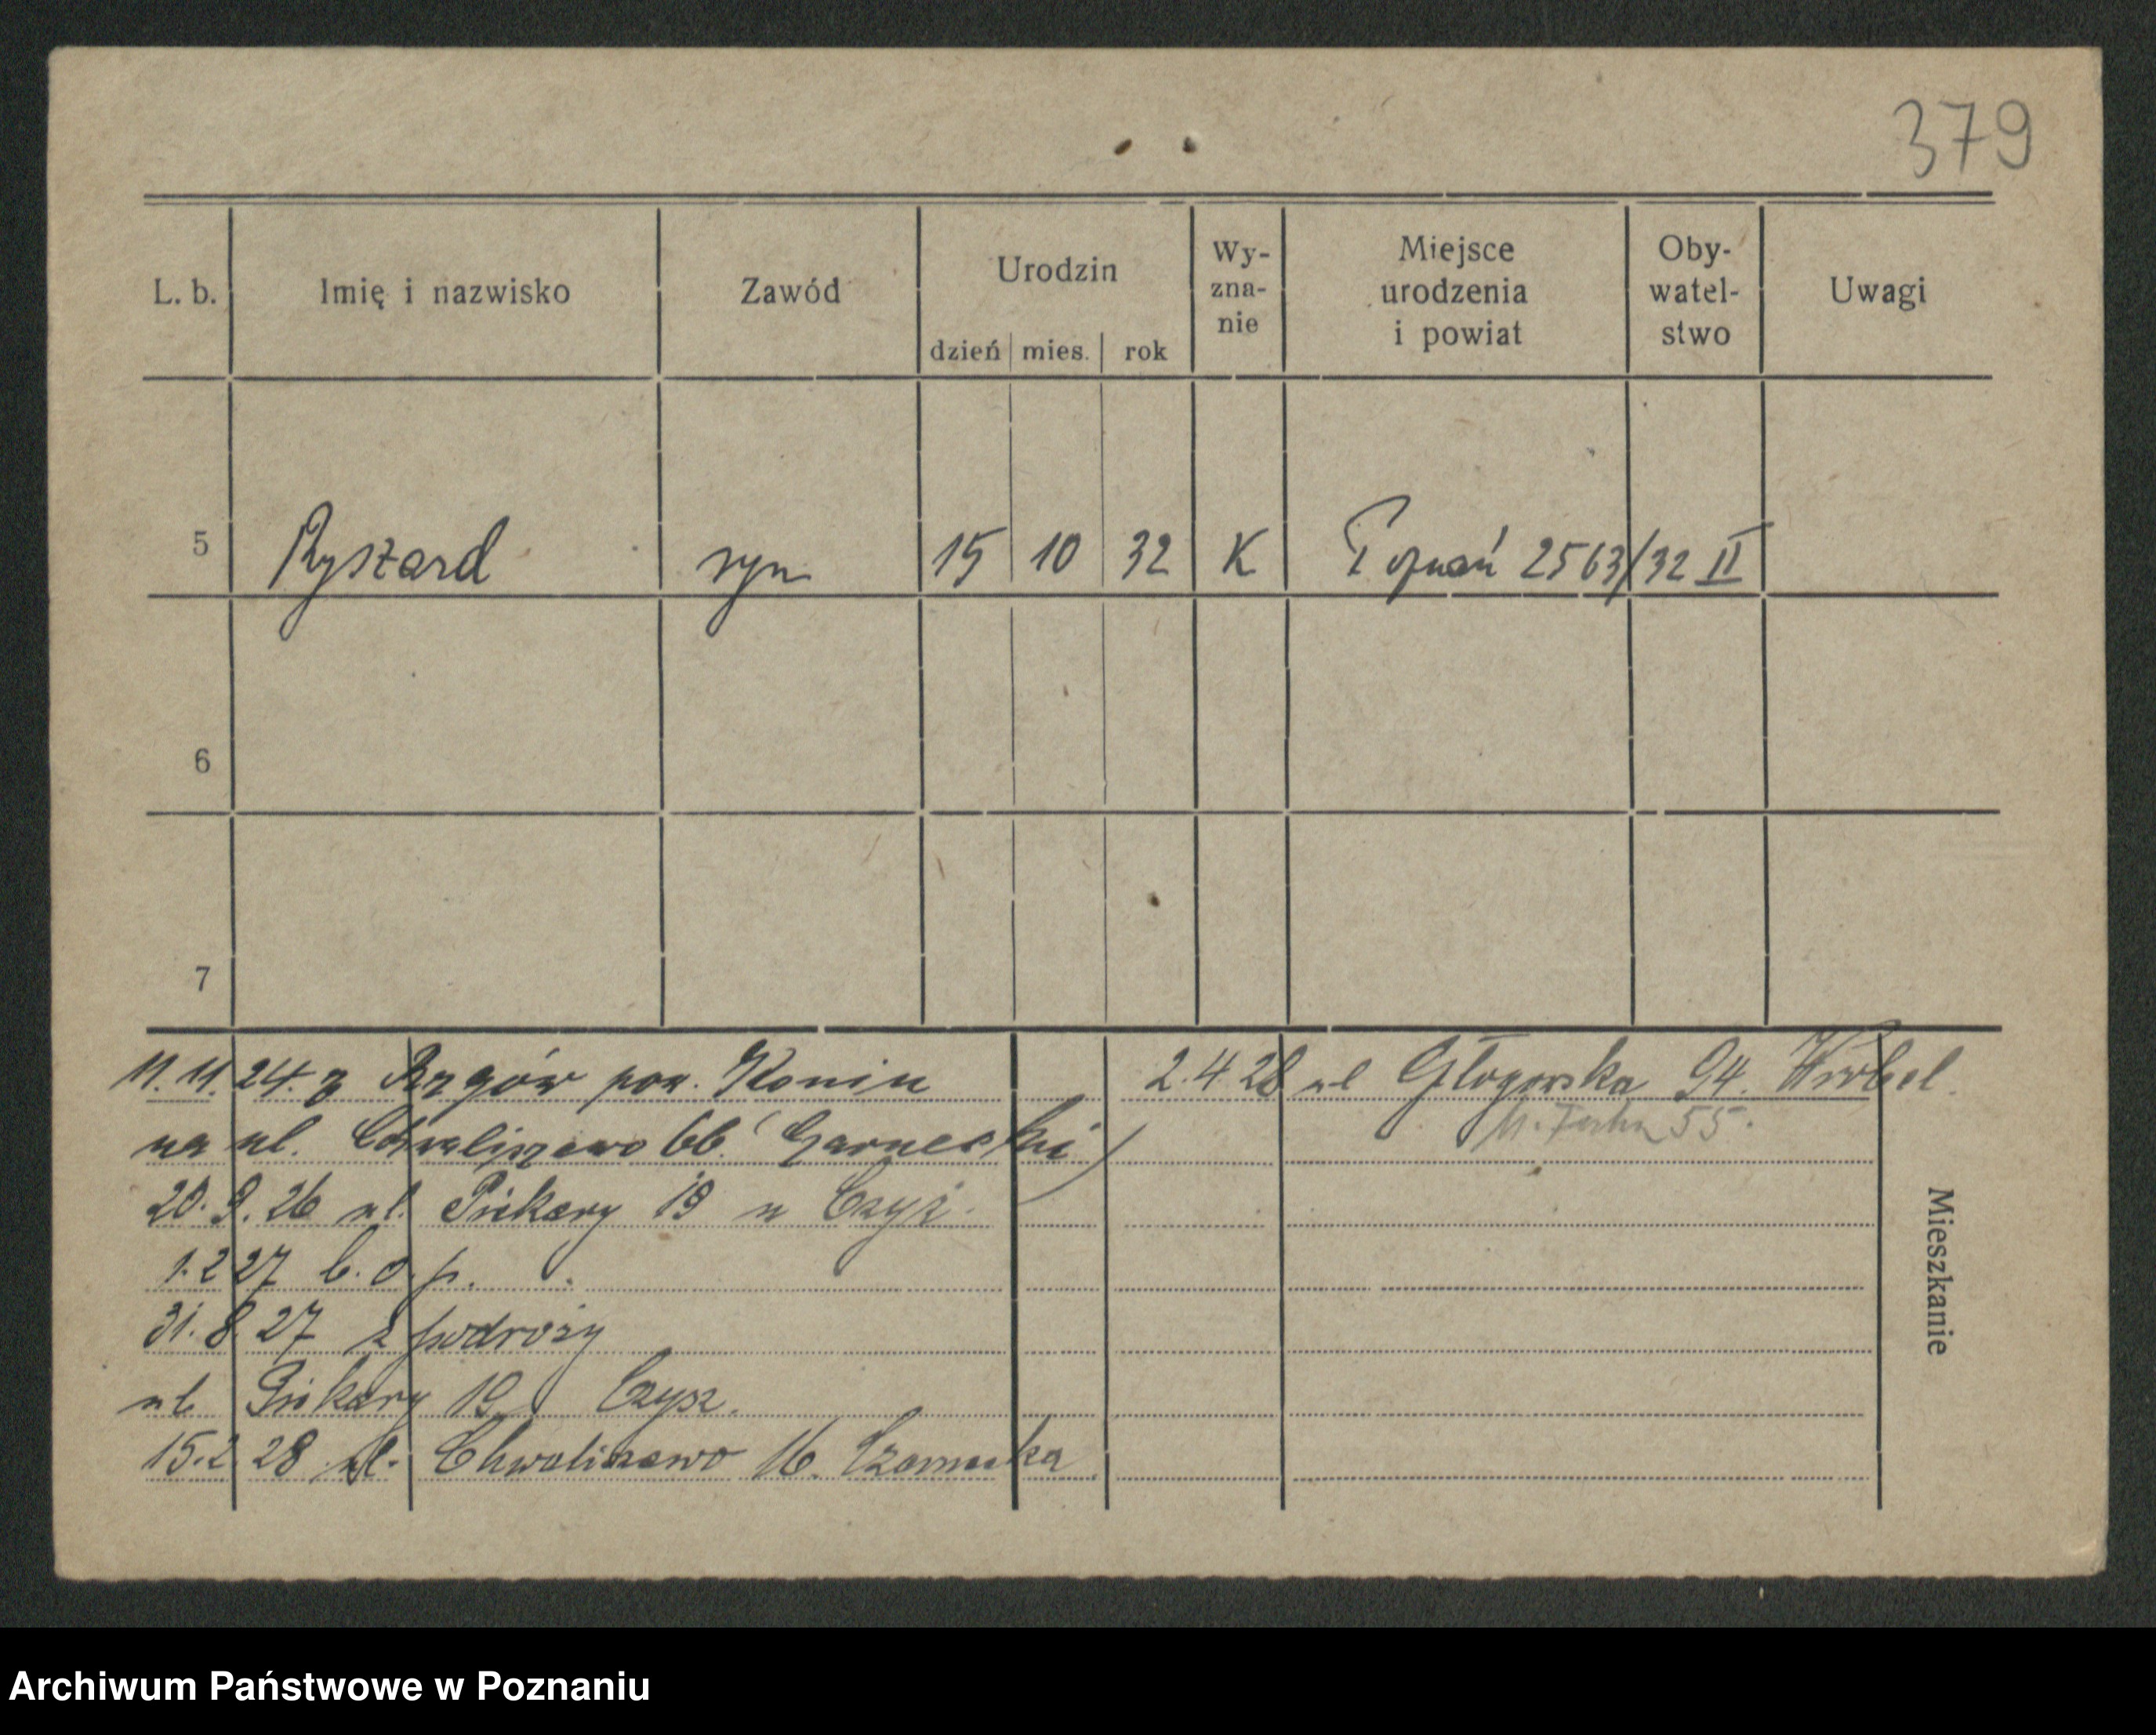 379
L. b. Imię i nazwisko Zawód Urodzin dzień mies. rok Wy- zna- nie Miejsce urodzenia i powiat Oby- watel- stwo Uwagi
5 Ryszard syn 15 10 32 K Poznań 2563/32 II
6
7
11.11.24. z Rzgów pow. Konin
na ul. Chwaliszewo 66.
20.9.26 ul. Piekary 19 u Czyż.
1.2.27 b.o.p.
31.8.27 z podroży
ul. Piekary 19 Czysz.
15.2.28 ul. Chwaliszewo 16.
2.4.28 ul Głogowska 94.
55.
Mieszkanie
Archiwum Państwowe w Poznaniu